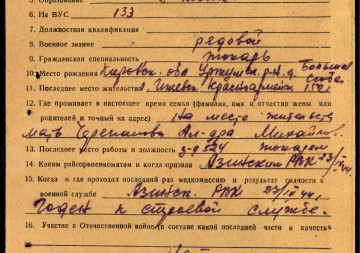 6. На ВУС 133
7. Должностная квалификация
8. Военное звание рядовой
9. Гражданская специальность токарь
10. Место рождения Кировск. обл Уржумск. р-н. д. Большая
11. Последнее место жительства г. Ижевск Красноармейск. 150
12. Где проживает в настоящее время семья (фамилия, имя и отчество жены или
родителей и точный их адрес) На месте жительств
мать Черепанова Ал-дра Михайлов.
13. Последнее место работы и должность з-д 524 токарем
14. Каким райгорвоенкоматом и когда призван Азинским РВК 23/IV 44г.
15. Когда и где проходил последний раз медкомиссию и результат годности к
военной службе Азинск. РВК 23/IV 44г.
годен к строевой службе.
16. Участие в Отечественной войне (в составе какой последней части в качестве